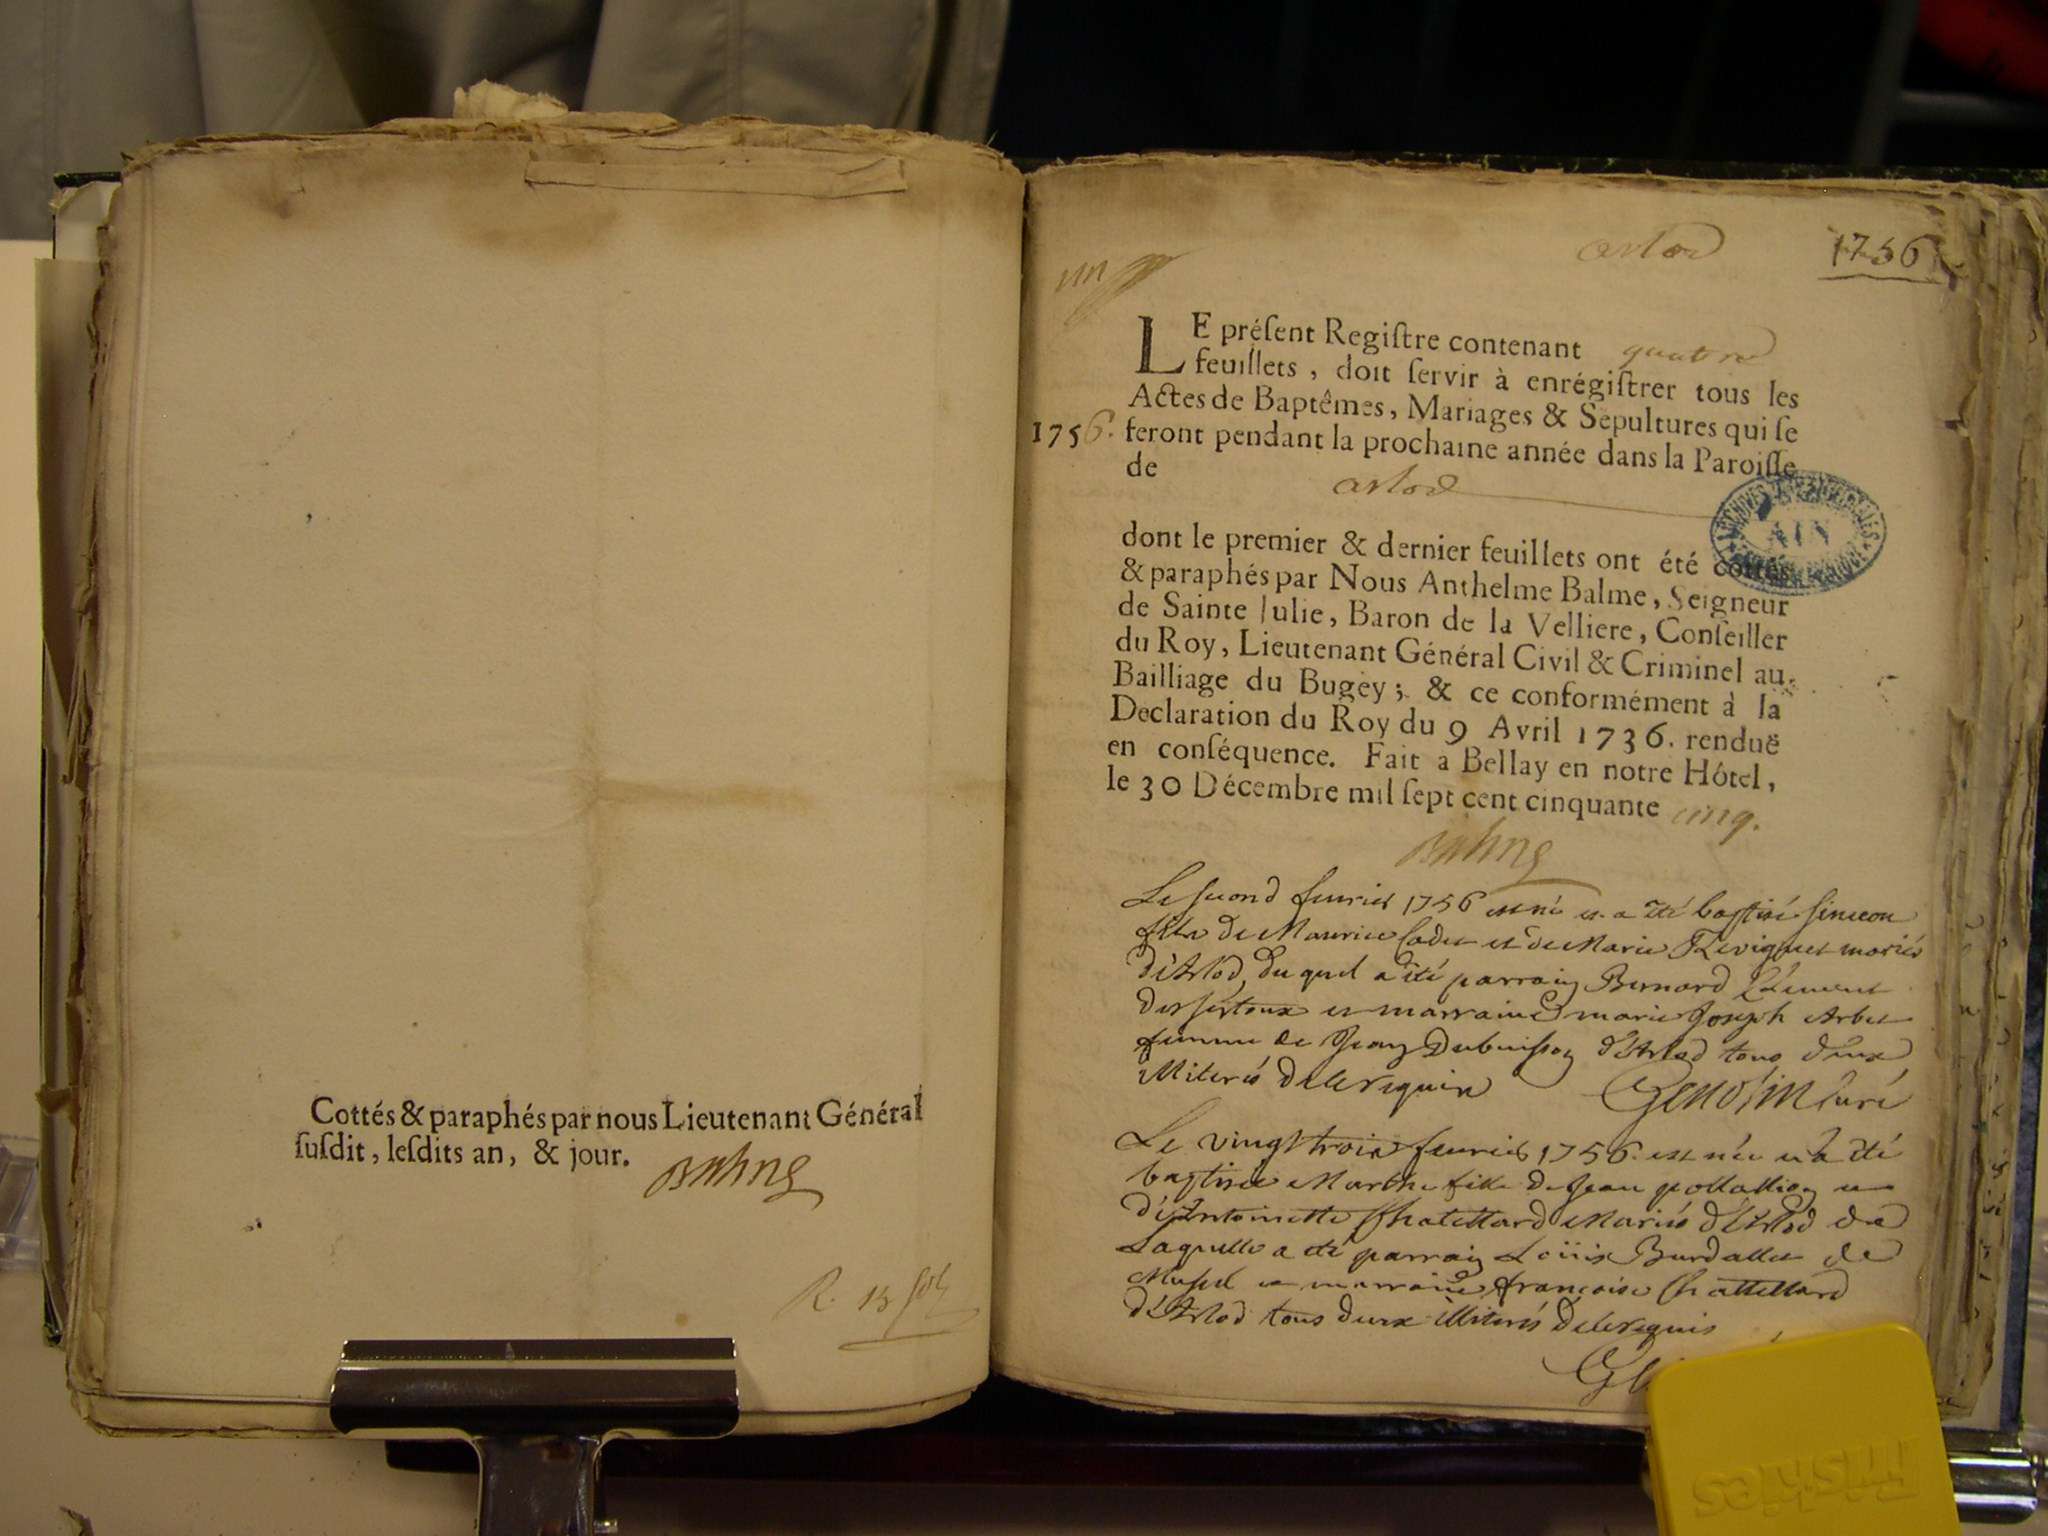 Cottés & paraphés par nous Lieutenant Général
susdit, lesdits an, & jour.
R. 13 sols
arlod
1756
un
LE présent Registre contenant quatre
feuillets, doit servir à enrégistrer tous les
Actes de Baptêmes, Mariages & Sépultures qui se
1756. feront pendant la prochaine année dans la Paroisse
de arlod
ARCHIVES DEPARTEMENTALES
AIN
dont le premier & dernier feuillets ont été cottés
& paraphés par Nous Anthelme Balme, Seigneur
de Sainte Julie, Baron de la Velliere, Conseiller
du Roy, Lieutenant Général Civil & Criminel au
Bailliage du Bugey; & ce conformément à la
Declaration du Roy du 9 Avril 1736. renduë
en conséquence. Fait a Bellay en notre Hôtel,
le 30 Décembre mil sept cent cinquante cinq.
Le second fevrier 1756 est né et a été baptisé Simeon
fils de Maurice Cadet et de Marie Reviguet mariés
d'Arlod, du quel a été parrain Bernard
et marraine marie Joseph Arbet
femme de Jean Dubuisson d'Arlod tous deux
illiterés de ce requis Genolin Curé
Le vingt trois fevrier 1756 est née et a été
baptisée Marthe fille de Jean et
d'Antoinette Chatellard Mariés d'Arlod de
Laquelle a été parrain Loüis Burdallet de
Musel et marraine françoise Chattellard
d'Arlod tous deux illiterés de ce requis